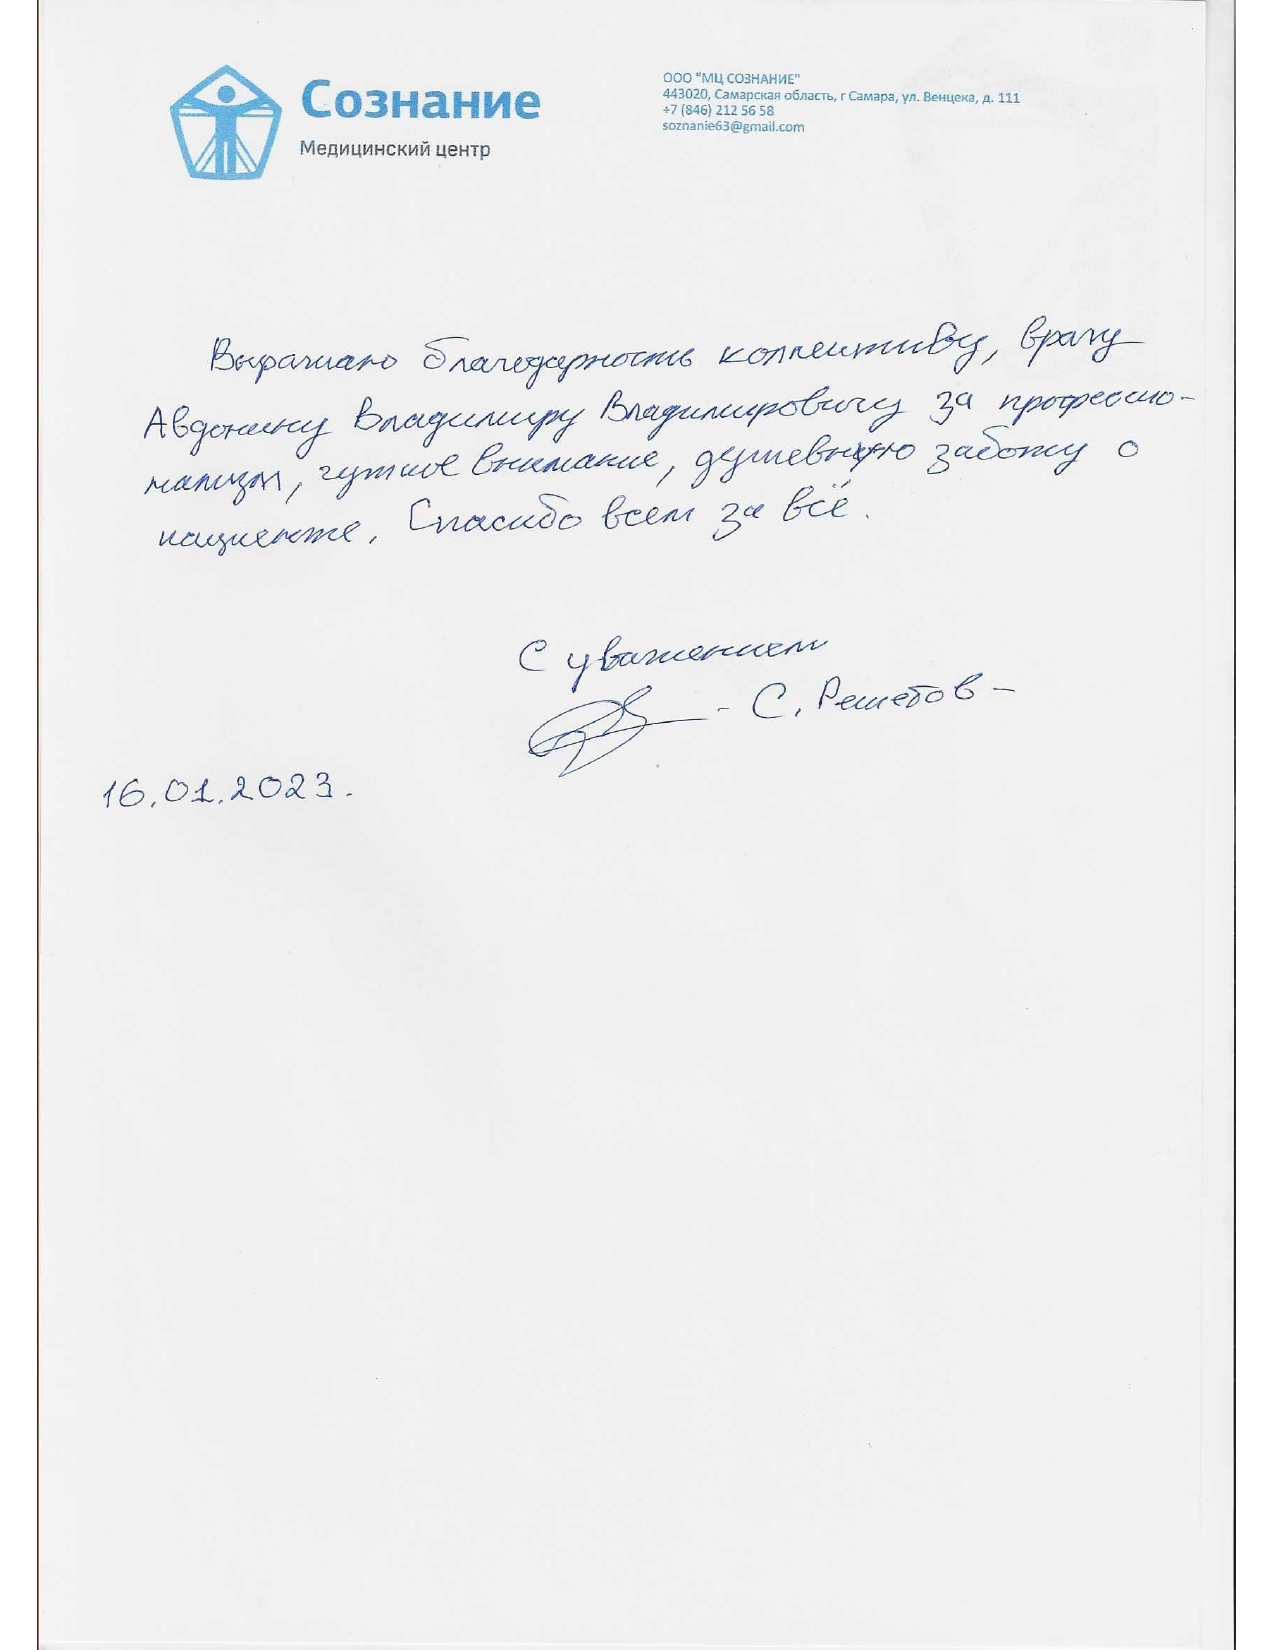 Сознание
Медицинский центр
ООО "МЦ СОЗНАНИЕ"
443020, Самарская область, г Самара, ул. Венцека, д. 111
+7 (846) 212 56 58
soznanie63@gmail.com
Выражаю благодарность коллективу, врачу
Авдонину Владимиру Владимировичу за профессио-
нализм, чуткое внимание, душевную заботу о
пациенте. Спасибо всем за всё.
С уважением
- С. Решетов -
16.01.2023.